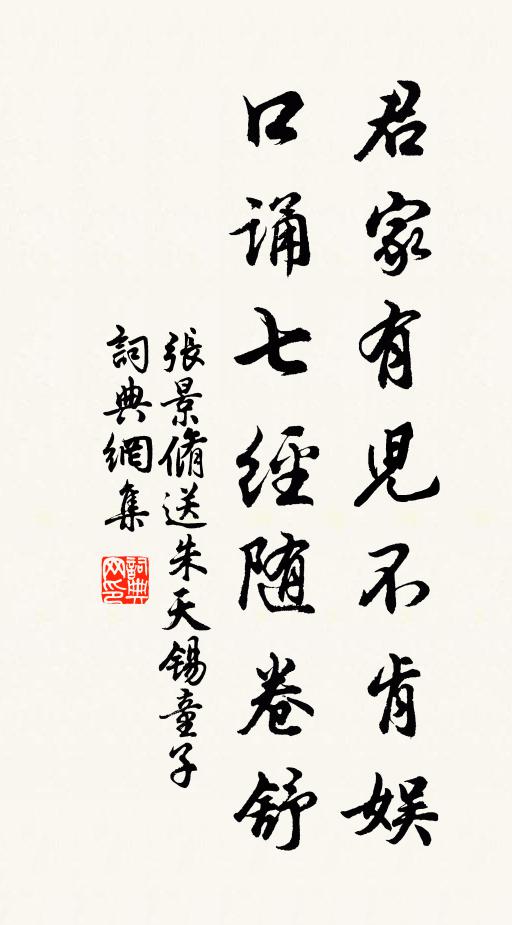 君家有児不肯娱
口诵七經随卷舒
張景脩送朱天锡童子
詞典網集
詞典网印